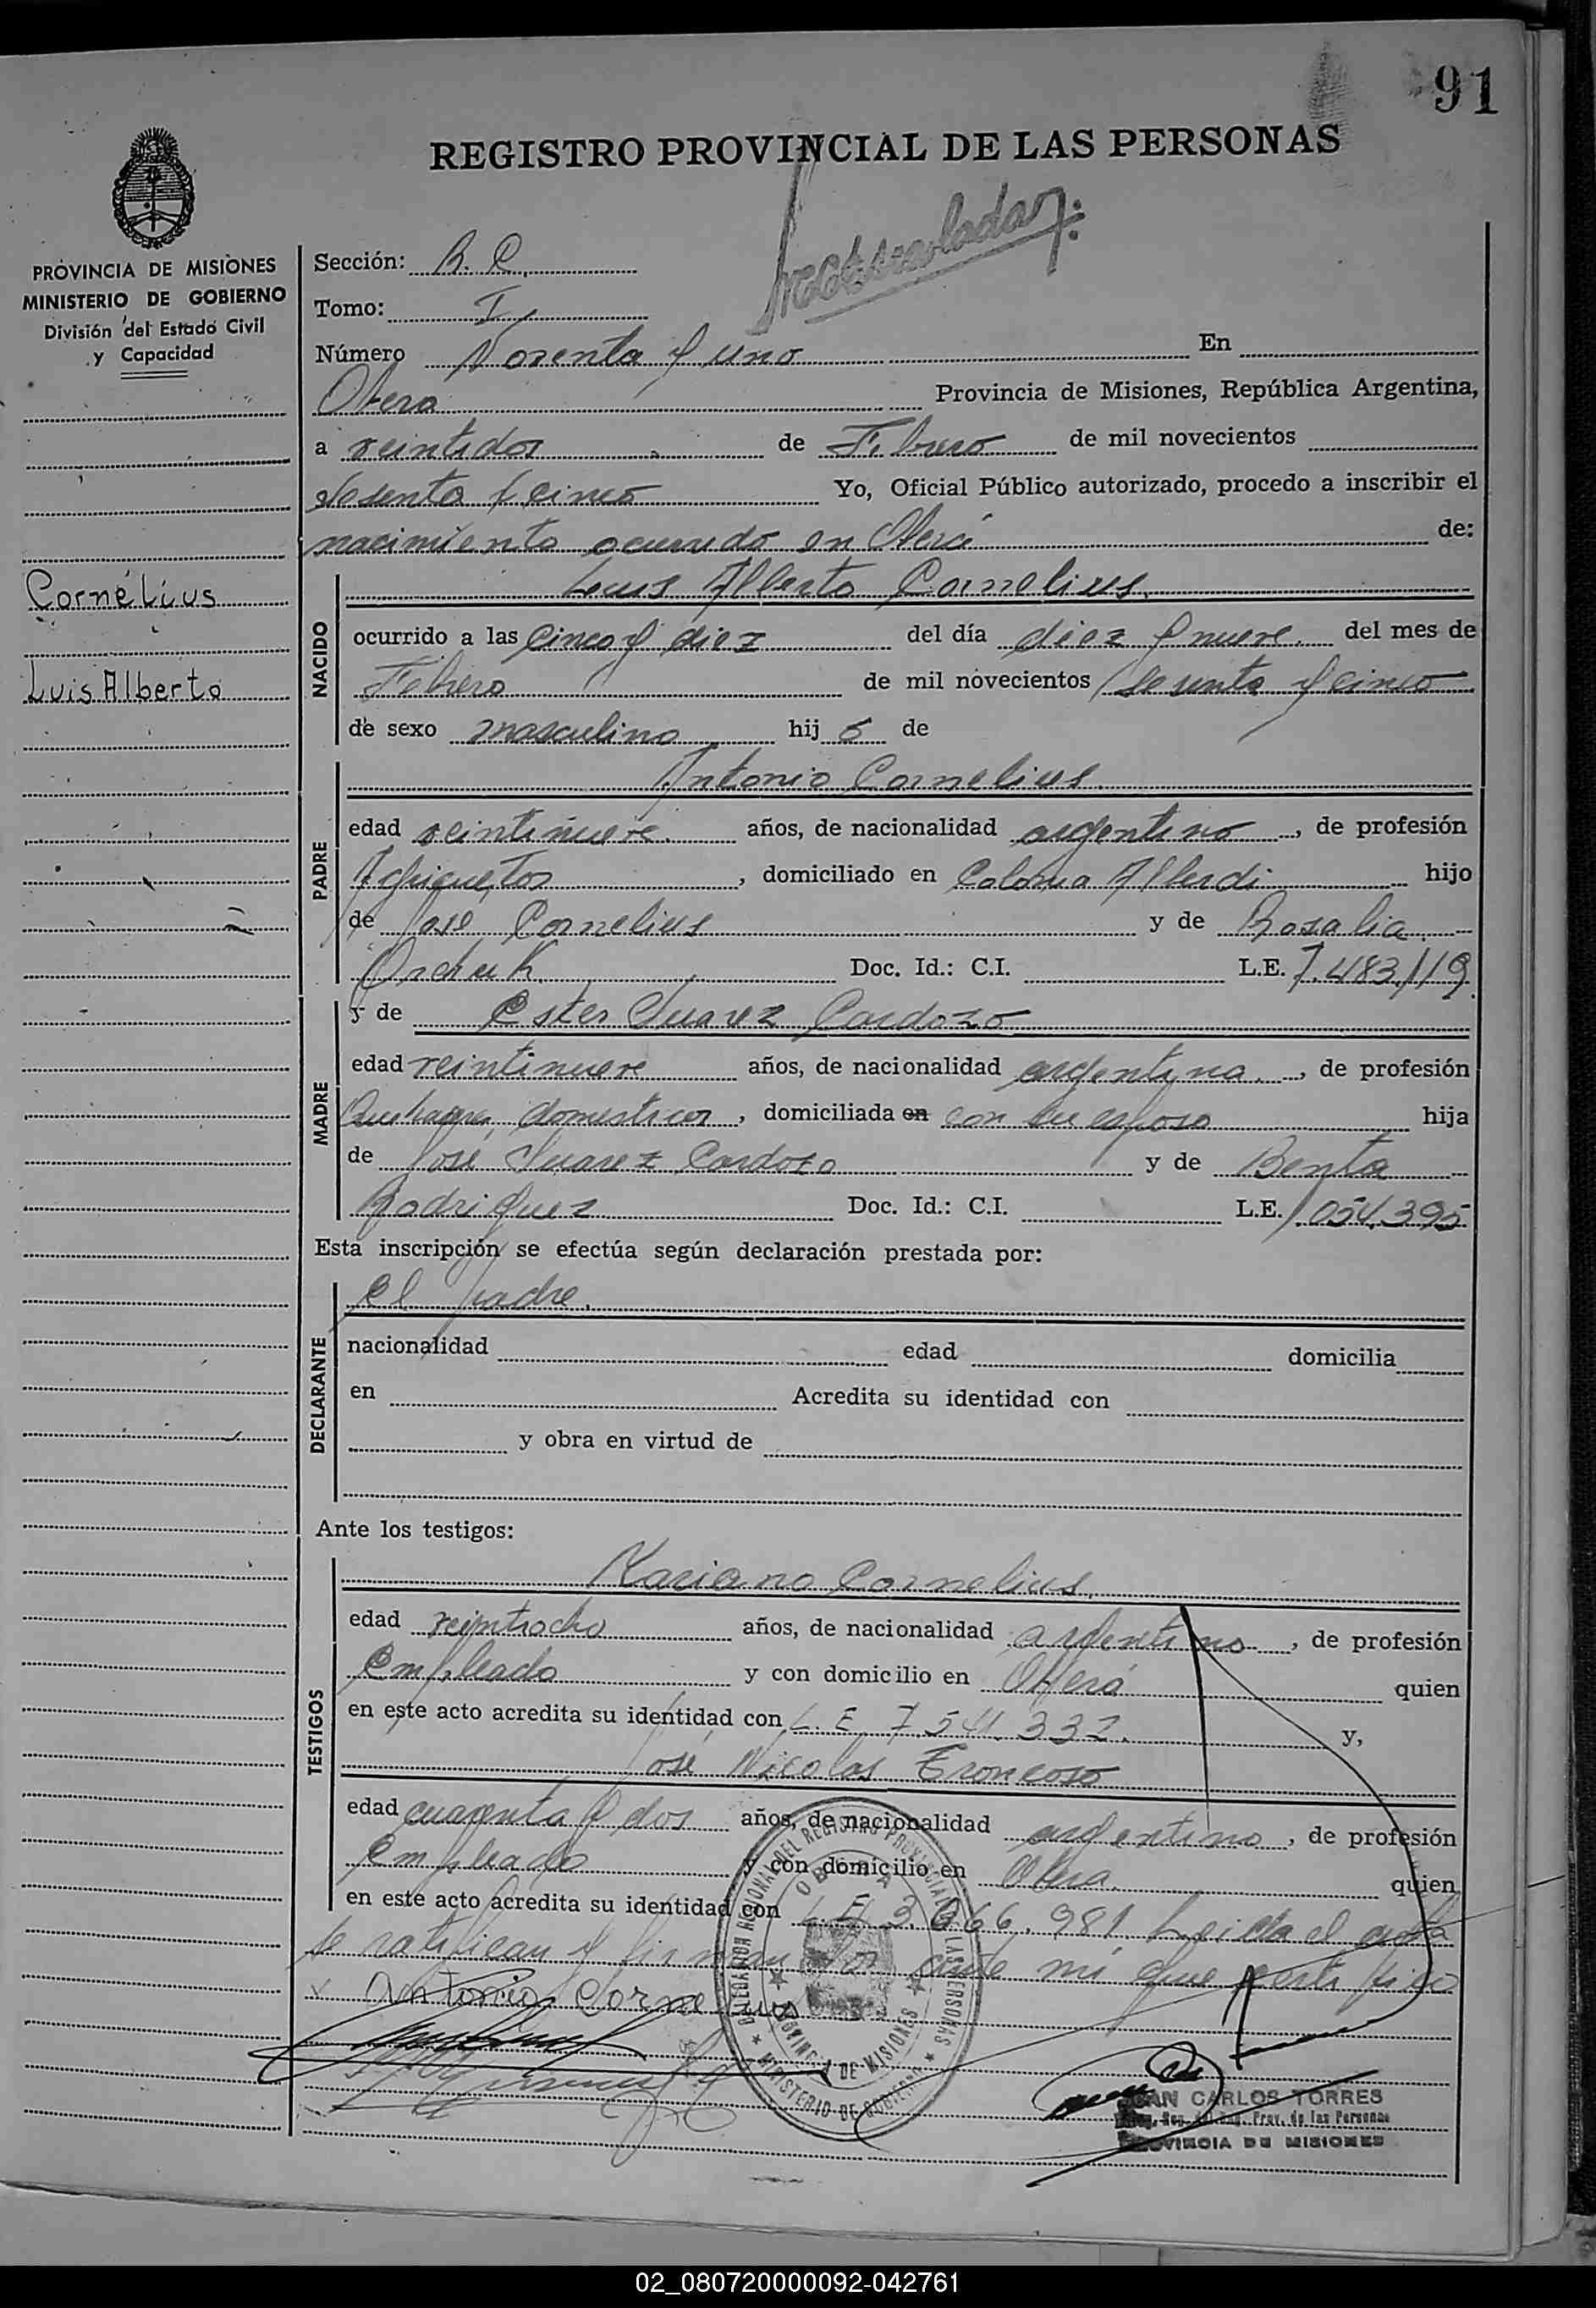 91
REGISTRO PROVINCIAL DE LAS PERSONAS
PROVINCIA DE MISIONES
MINISTERIO DE GOBIERNO
División del Estado Civil
y Capacidad
Cornélius
Luis Alberto
Sección: R. C.
Tomo: I
Número Noventa y uno En
Obera Provincia de Misiones, República Argentina,
a veintidos de Febrero de mil novecientos
sesenta y cinco Yo, Oficial Público autorizado, procedo a inscribir el
nacimiento ocurrido en Oberá de:
NACIDO
Luis Alberto Cornelius.
ocurrido a las cinco y diez del día diez y nueve. del mes de
Febrero de mil novecientos sesenta y cinco
de sexo masculino hij o de
PADRE
Antonio Cornelius.
edad veintinueve. años, de nacionalidad argentino, de profesión
Agricultor, domiciliado en Colonia Alberdi hijo
de José Cornelius y de Rosalia
Doc. Id.: C.I. L.E. 7.483.119
MADRE
y de Ester Suarez Cardozo
edad veintinueve años, de nacionalidad argentina., de profesión
Quehaceres domesticos, domiciliada en con su esposo hija
de José Suarez Cardozo y de Benta
Rodriguez Doc. Id.: C.I. L.E. 1.054.395
Esta inscripción se efectúa según declaración prestada por:
DECLARANTE
el padre.
nacionalidad edad domicilia
en Acredita su identidad con
y obra en virtud de
Ante los testigos:
TESTIGOS
Mariano Cornelius,
edad veintiocho años, de nacionalidad argentino, de profesión
Empleado y con domicilio en Oberá quien
en este acto acredita su identidad con L. E. 7.541.332. y,
José Nicolas Troncoso
edad cuarenta y dos años, de nacionalidad argentino, de profesión
Empleado y con domicilio en Obera. quien
en este acto acredita su identidad con L.E. 3.066.981. Leida el acta
se ratifican y firman por ante mi que certifico
Antonio Cornelius
DELEGACION REGIONAL DEL REGISTRO PROVINCIAL DE LAS PERSONAS
OBERA
PROVINCIA DE MISIONES
MINISTERIO DE GOBIERNO
JUAN CARLOS TORRES
Reg. Prov. de las Personas
PROVINCIA DE MISIONES
02_080720000092-042761